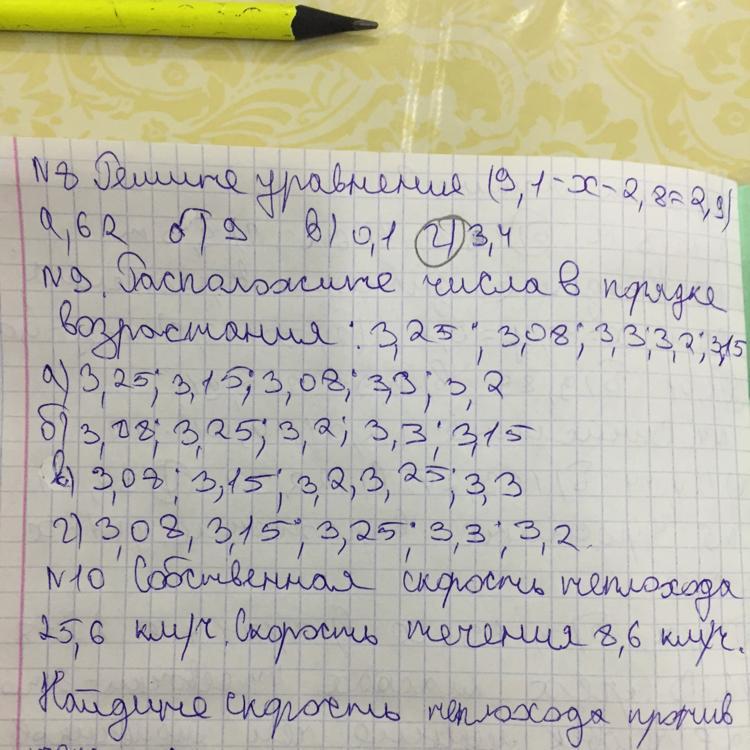 N8 Решите уравнения (9,1-х-2,8=2,9)
а,62 б) 9 в) 0,1 г) 3,4
N9. Расположите числа в порядке
возрастания: 3,25; 3,08; 3,3; 3,2; 3,15
а) 3,25; 3,15; 3,08; 3,3; 3,2
б) 3,08; 3,25; 3,2; 3,3; 3,15
в) 3,08; 3,15; 3,2, 3,25; 3,3
г) 3,08, 3,15; 3,25; 3,3; 3,2.
N10 Собственная скрость теплохода
25,6 км/ч. Скорость течения 8,6 км/ч.
Найдите скорость теплохода против